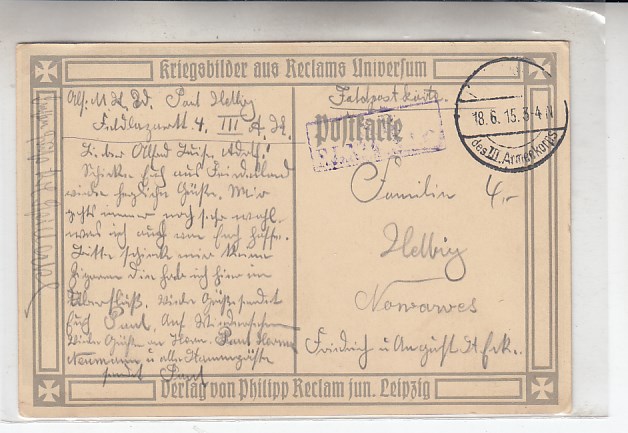 Kriegsbilder aus Reclams Universum
Abs. M. K. Paul Helbig
Feldlazarett 4. III A. K.
Feldpostkarte
Postkarte
18.6.15. 3-4 N
des III. Armeekorps
Lieber Alfred Luise Adolf!
Schicke Euch aus Feindesland
wieder herzliche Grüße. Mir
gehts immer noch sehr wohl
was ich auch von Euch hoffe.
Bitte schickt mir keine
Zigarren die hab ich hier im
Überfluß. Viele Grüße sendet
Euch Paul. Auf Wiedersehen
Viele Grüße an Herm. Paul
Neumann u alle Stammgäste
sendet Paul
Familie
Helbig
Nowawes
Friedrich u August Str Ecke.
Verlag von Philipp Reclam jun. Leipzig